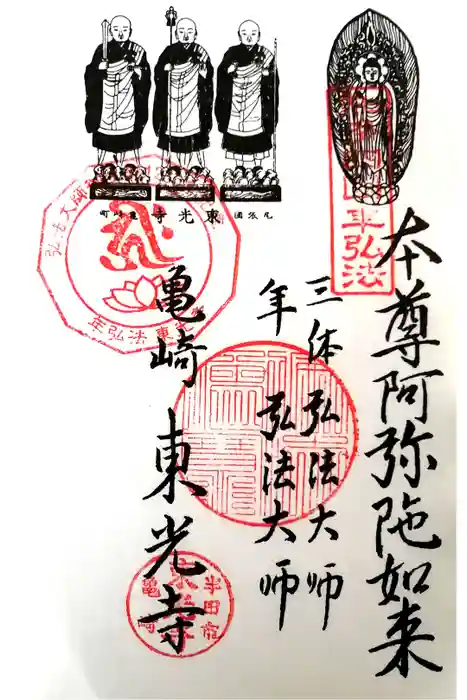 本尊阿弥陀如来
三体弘法大師
年弘法大師
亀崎 東光寺
町崎亀 寺光東 国張尾
年弘法
弘法大師
年弘法東光寺
半田市
亀崎
東光寺